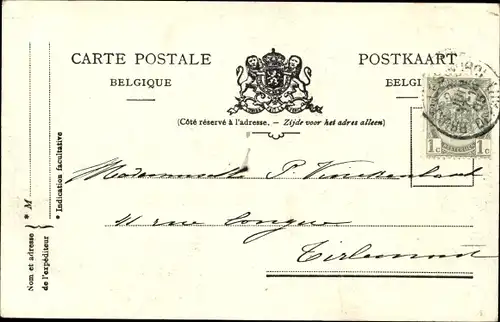 CARTE POSTALE
BELGIQUE
POSTKAART
BELGI
(Côté réservé à l'adresse. — Zijde voor het adres alleen)
1c 1c
Mademoiselle P.
41 rue Longue
Tirlemont
* M
* Indication facultative
Nom et adresse
de l'expéditeur